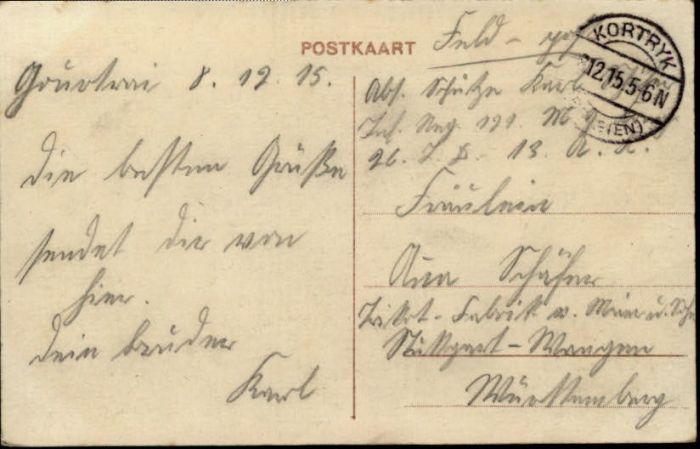 POSTKAART
Feld-
KORTRYK
12.15.5-6N
(EN)
Courtrai 8. 12. 15.
die besten Grüße
sendet dir von
hier.
dein bruder
Karl
Abs. Schütze Karl
Inf. Reg. 121. M.
26. I. D. 13. A. K.
Fräulein
Ana Schäfer
Trikot-Fabrik v. u.
Stuttgart-Wangen
Württemberg